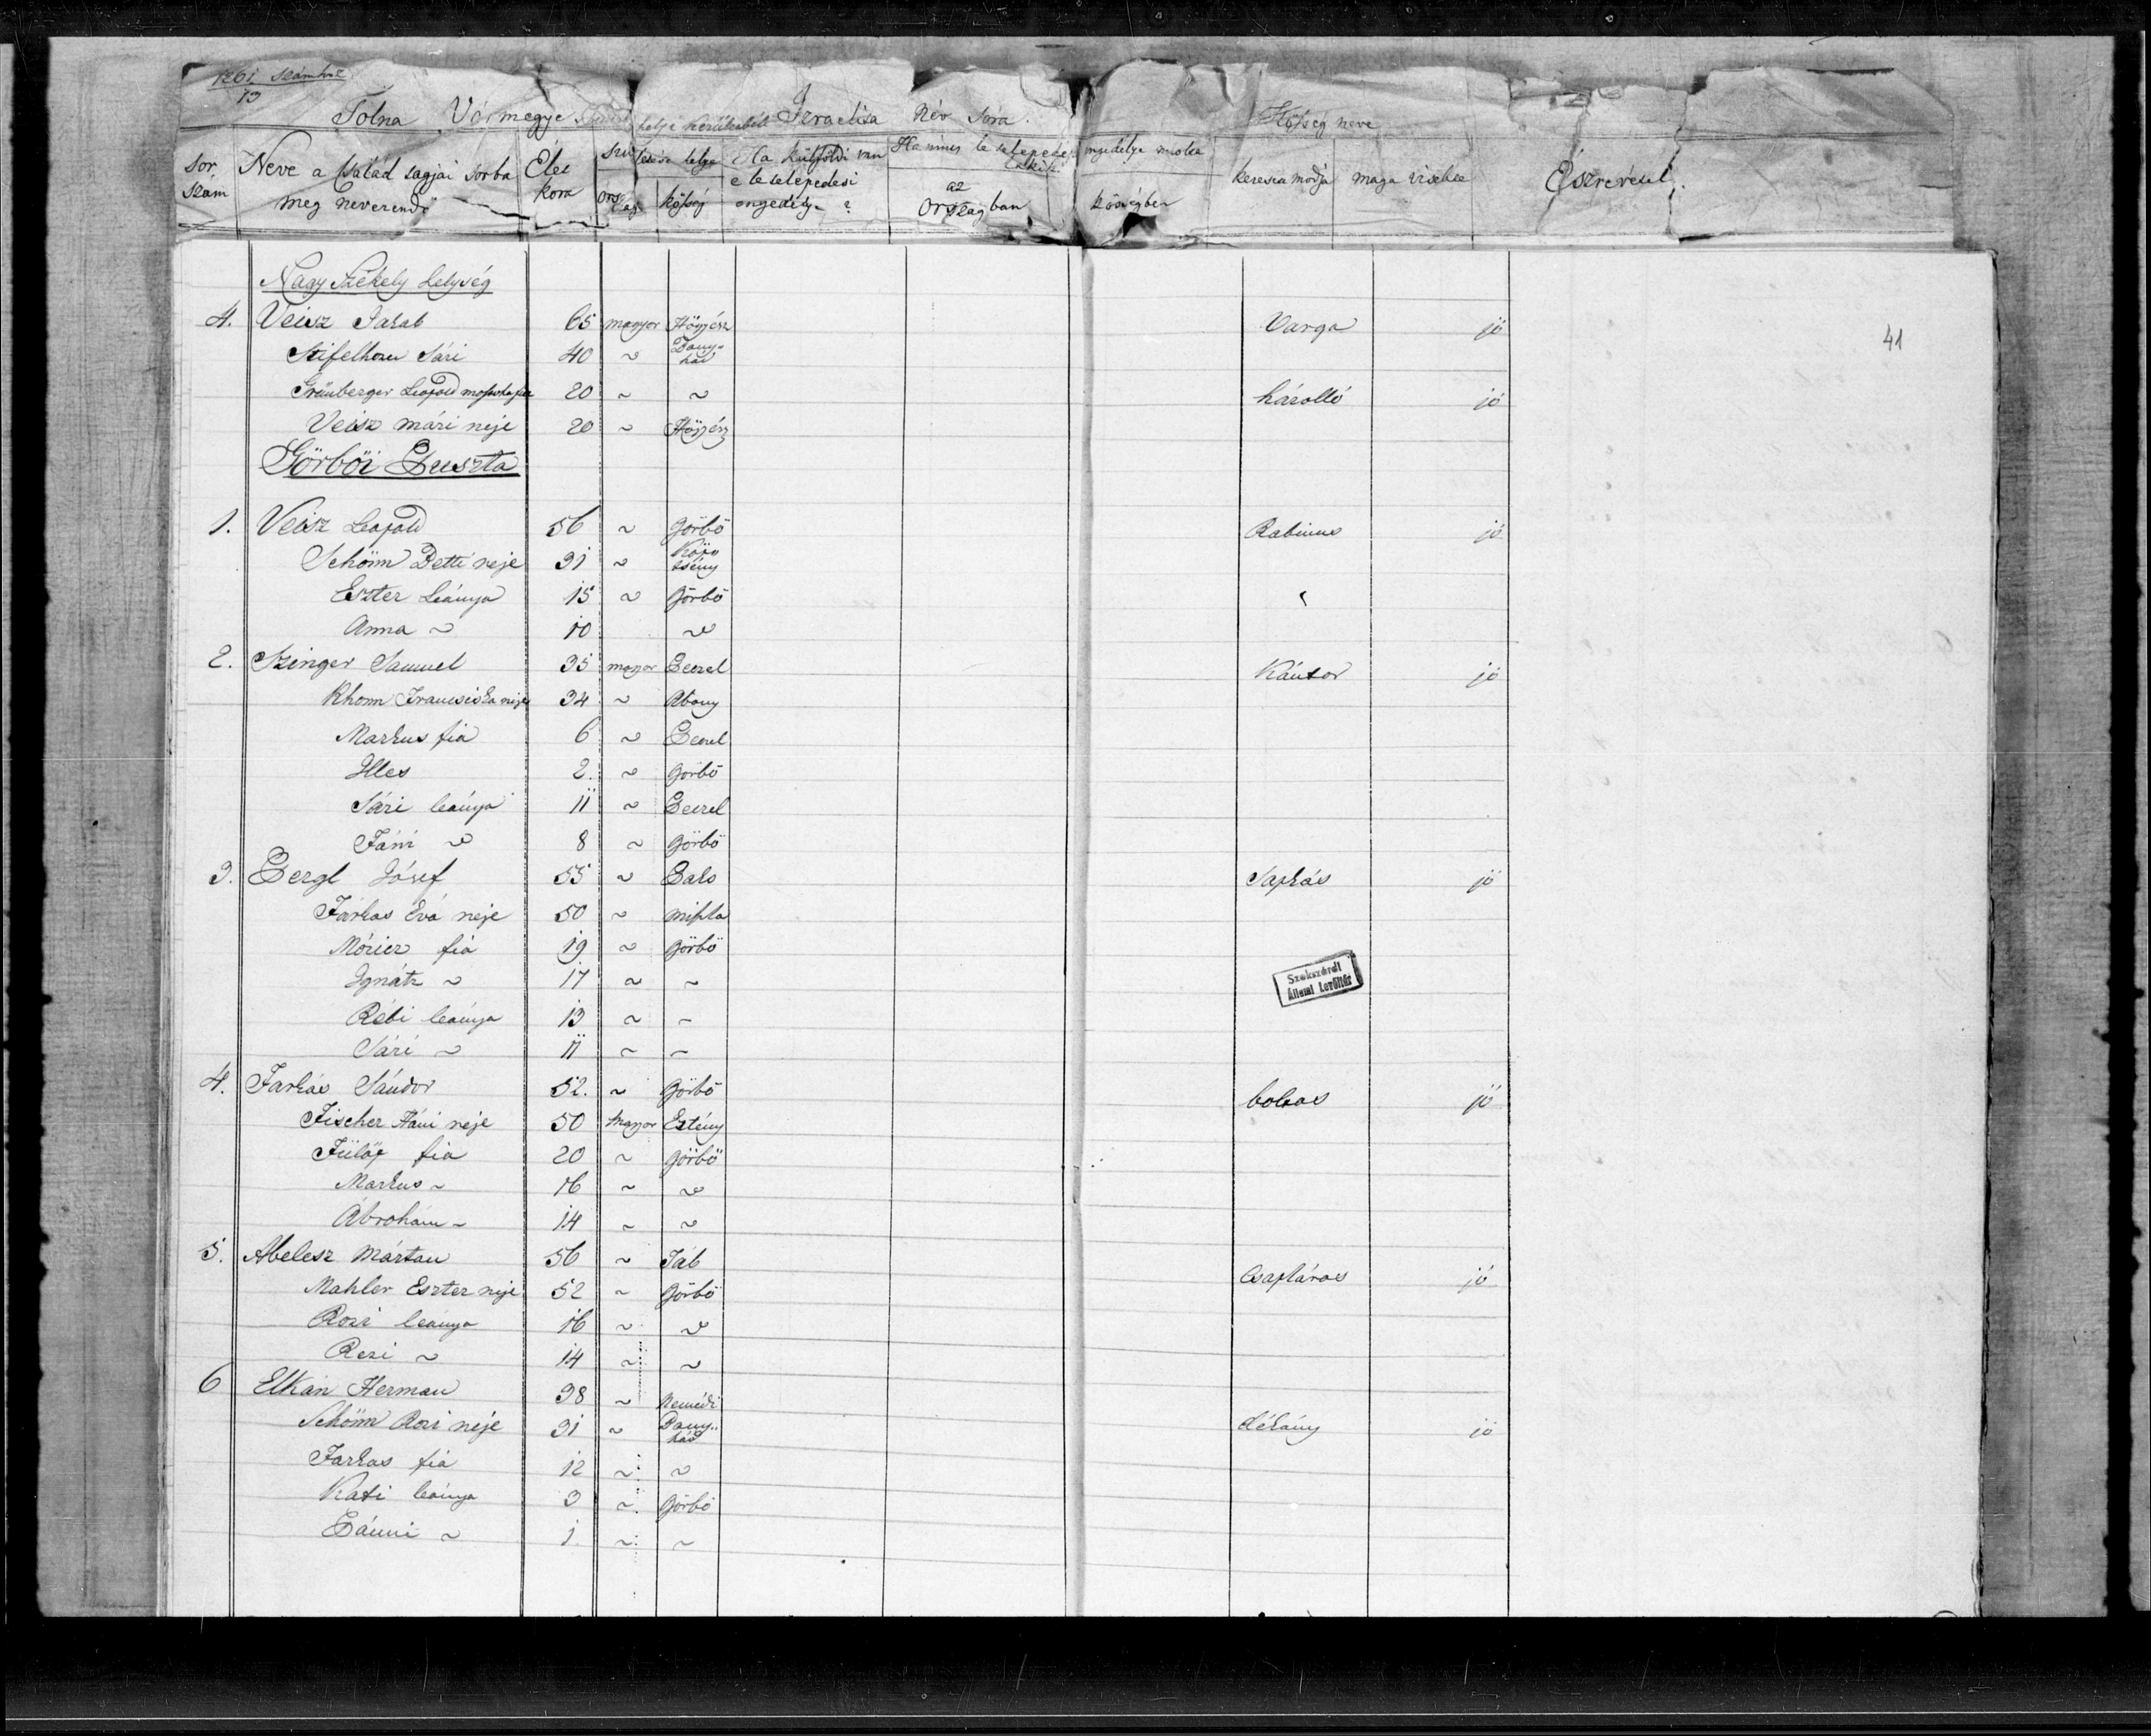 1261 számhoz
13
Tolna Vármegye helje kerületbéli Izraelita Név Sora. Község neve
Sor. szam Neve a Család tagjai sorba meg neverendő Élet kora szü letése helye Ország község Ha külföldi van e letelepedesi engedélye ? Ha nincs letelepedesi engedélye miolta lakik az Országban községben keresetmodja maga viselete Észrevétel.
41
Nagy Székely helység
4. Veisz Jakab 65 magyar Högyész Varga jó
Stifelhorn Sári 40 ~ Dany= hád
Grünberger Leopold mostoha fia 20 ~ ~ házolló jó
Veisz Mári neje 20 ~ Högyész
Görböi Puszta
1. Veisz Leopold 56 ~ Görbö Rabinus jó
Schönn Betti neje 31 ~
Eszter Leánya 15 ~ Görbö
Anna ~ 10 ~
2. Szinger Samuel 35 magyar Peczel Kántor jó
Khonn Francziska neje 34 ~ Abony
Markus fia 6 ~ Peczel
Illes 2. ~ Görbö
Sári leánya 11 ~ Peczel
Fáni ~ 8 ~ Görbö
3. Pergl Jósef 55 ~ Paks Sapkás jó
Farkas Évá neje 50 ~ Miszla
Móricz fiá 19 ~ Görbö
Ignátz ~ 17 ~ ~
Rébi leánya 13 ~ ~
Sári ~ 11 ~ ~
4. Farkas Sándor 52. ~ Görbö boltos jó
Fischer Háni neje 50 magyar Eztény
Fülöp fia 20 ~ Görbö
Markus ~ 16 ~ ~
Ábrohám ~ 14 ~ ~
5. Abelesz Mártan 56 ~ Tab Csapláros jó
Mahler Eszter neje 52 ~ Görbö
Rozi leánya 16 ~ ~
Rezi ~ 14 ~ ~
6 Elkán Herman 38 ~ Nemédi
Schönn Rozi neje 31 ~ Dany= hád dékány jó
Farkas fiá 12 ~ ~
Kati leánya 3 ~ Görbö
Pánni ~ 1. ~ ~
Szekszárdi
Állami Levéltár